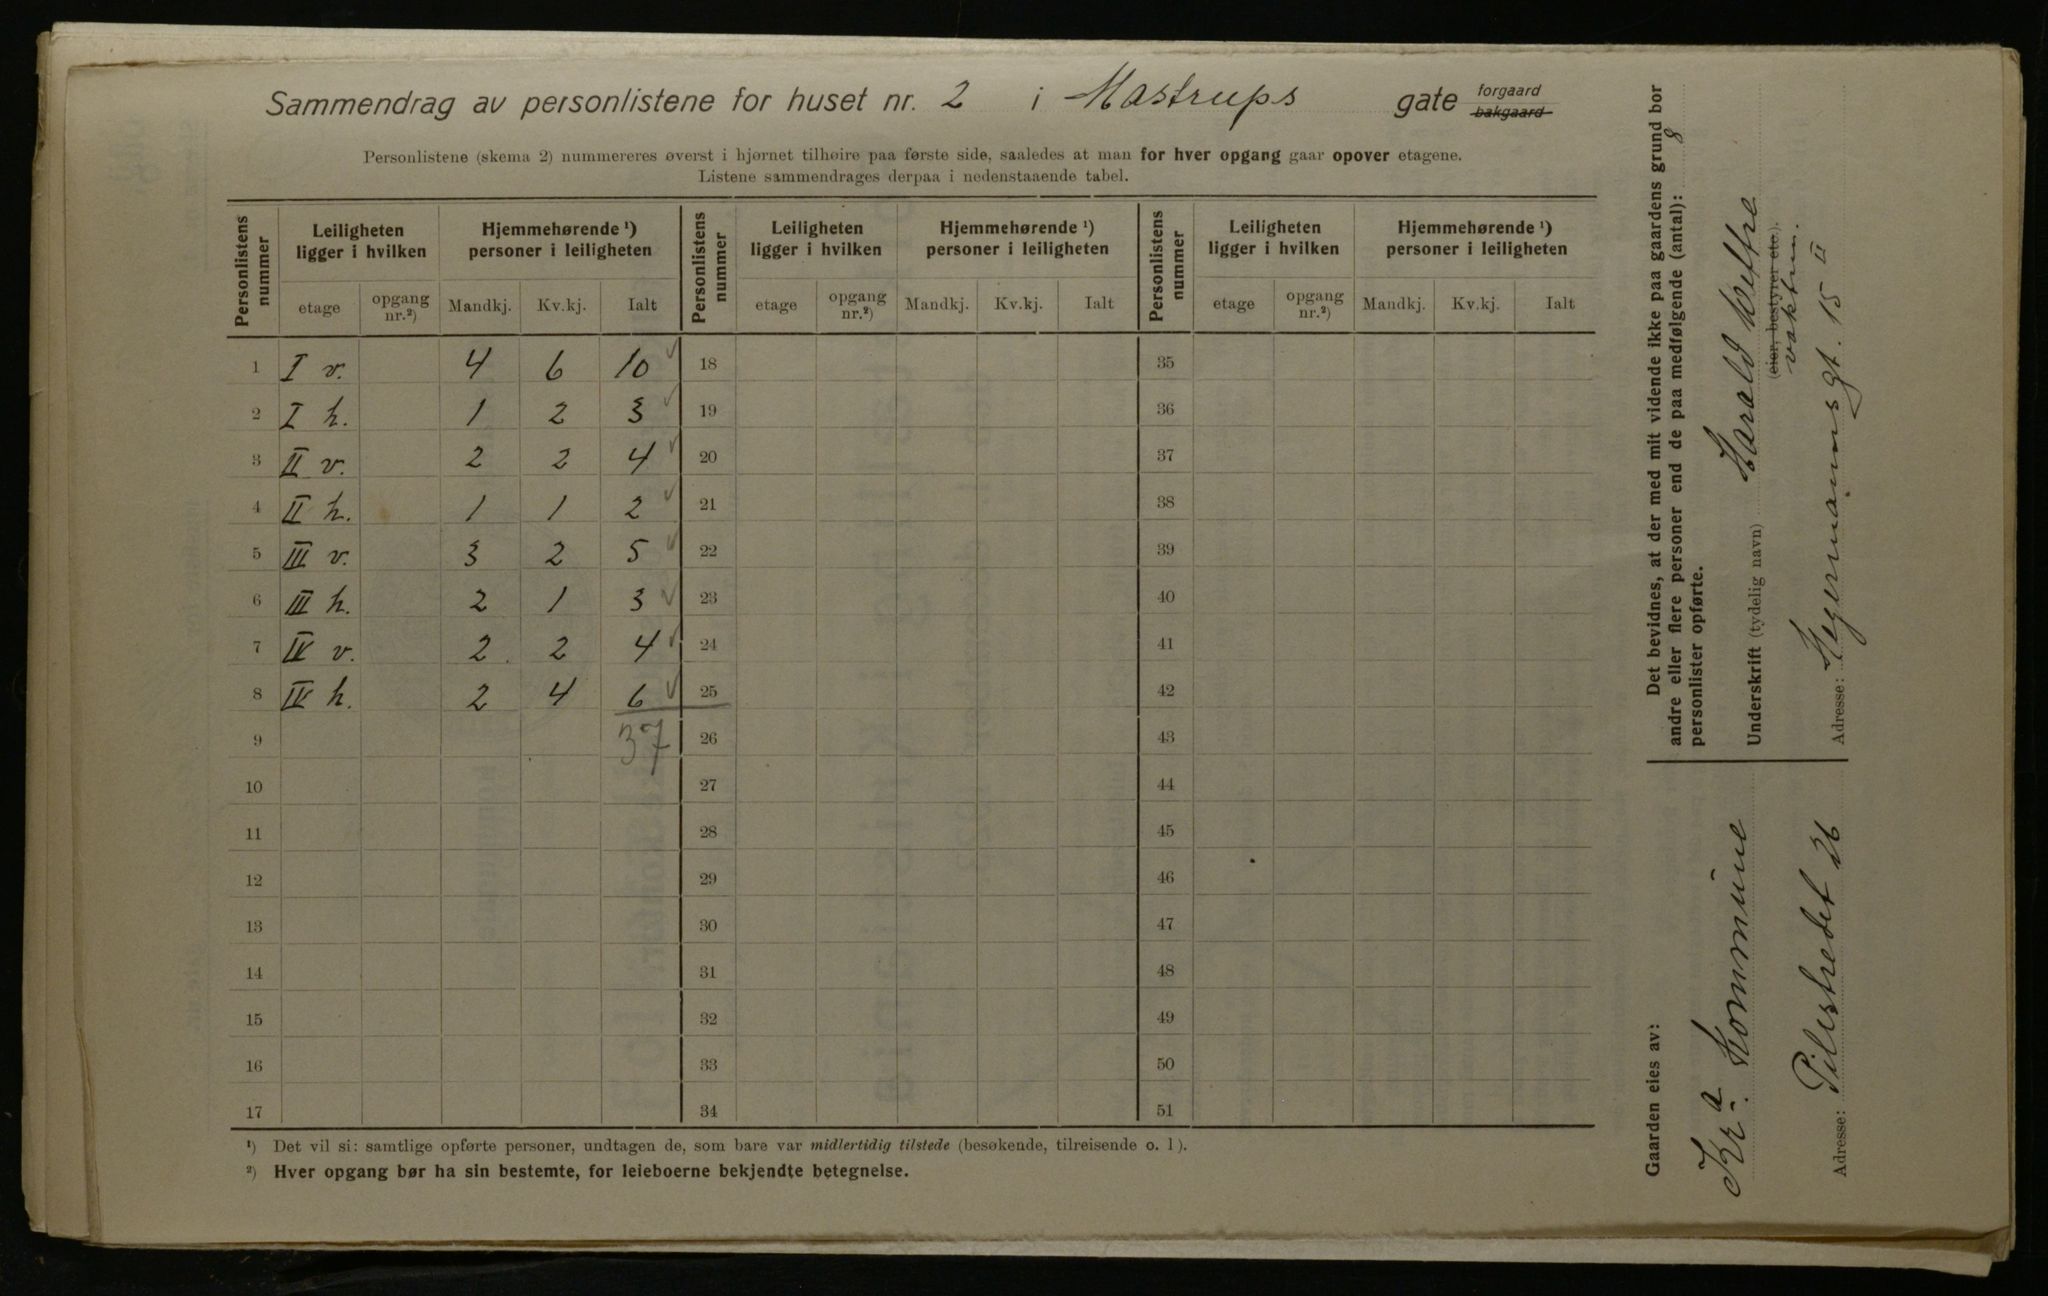 Sammendrag av personlistene for huset nr. 2 i Mastrups gate forgaard
bakgaard
Personlistene (skema 2) nummereres øverst i hjørnet tilhøire paa første side, saaledes at man for hver opgang gaar opover etagene.
Listene sammendrages derpaa i nedenstaaende tabel.
Personlistens nummer | Leiligheten ligger i hvilken | Hjemmehørende ¹) personer i leiligheten | Personlistens nummer | Leiligheten ligger i hvilken | Hjemmehørende ¹) personer i leiligheten | Personlistens nummer | Leiligheten ligger i hvilken | Hjemmehørende ¹) personer i leiligheten
etage | opgang nr.²) | Mandkj. | Kv.kj. | Ialt | etage | opgang nr.²) | Mandkj. | Kv.kj. | Ialt | etage | opgang nr.²) | Mandkj. | Kv.kj. | Ialt
1 I v. 4 6 10 ✓ 18 35
2 I h. 1 2 3 ✓ 19 36
3 II v. 2 2 4 ✓ 20 37
4 II h. 1 1 2 ✓ 21 38
5 III v. 3 2 5 ✓ 22 39
6 III h. 2 1 3 ✓ 23 40
7 IV v. 2 2 4 ✓ 24 41
8 IV h. 2 4 6 ✓ 25 42
9 37 26 43
10 27 44
11 28 45
12 29 46
13 30 47
14 31 48
15 32 49
16 33 50
17 34 51
¹) Det vil si: samtlige opførte personer, undtagen de, som bare var midlertidig tilstede (besøkende, tilreisende o. l).
²) Hver opgang bør ha sin bestemte, for leieboerne bekjendte betegnelse.
Det bevidnes, at der med mit vidende ikke paa gaardens grund bor
andre eller flere personer end de paa medfølgende (antal): 8
personlister opførte.
Underskrift (tydelig navn) Harald
(eier, bestyrer etc.).
vaktm.
Adresse: Hegermannsgt. 15 II
Gaarden eies av:
Kr-a Kommune
Adresse: Pilestredet 26